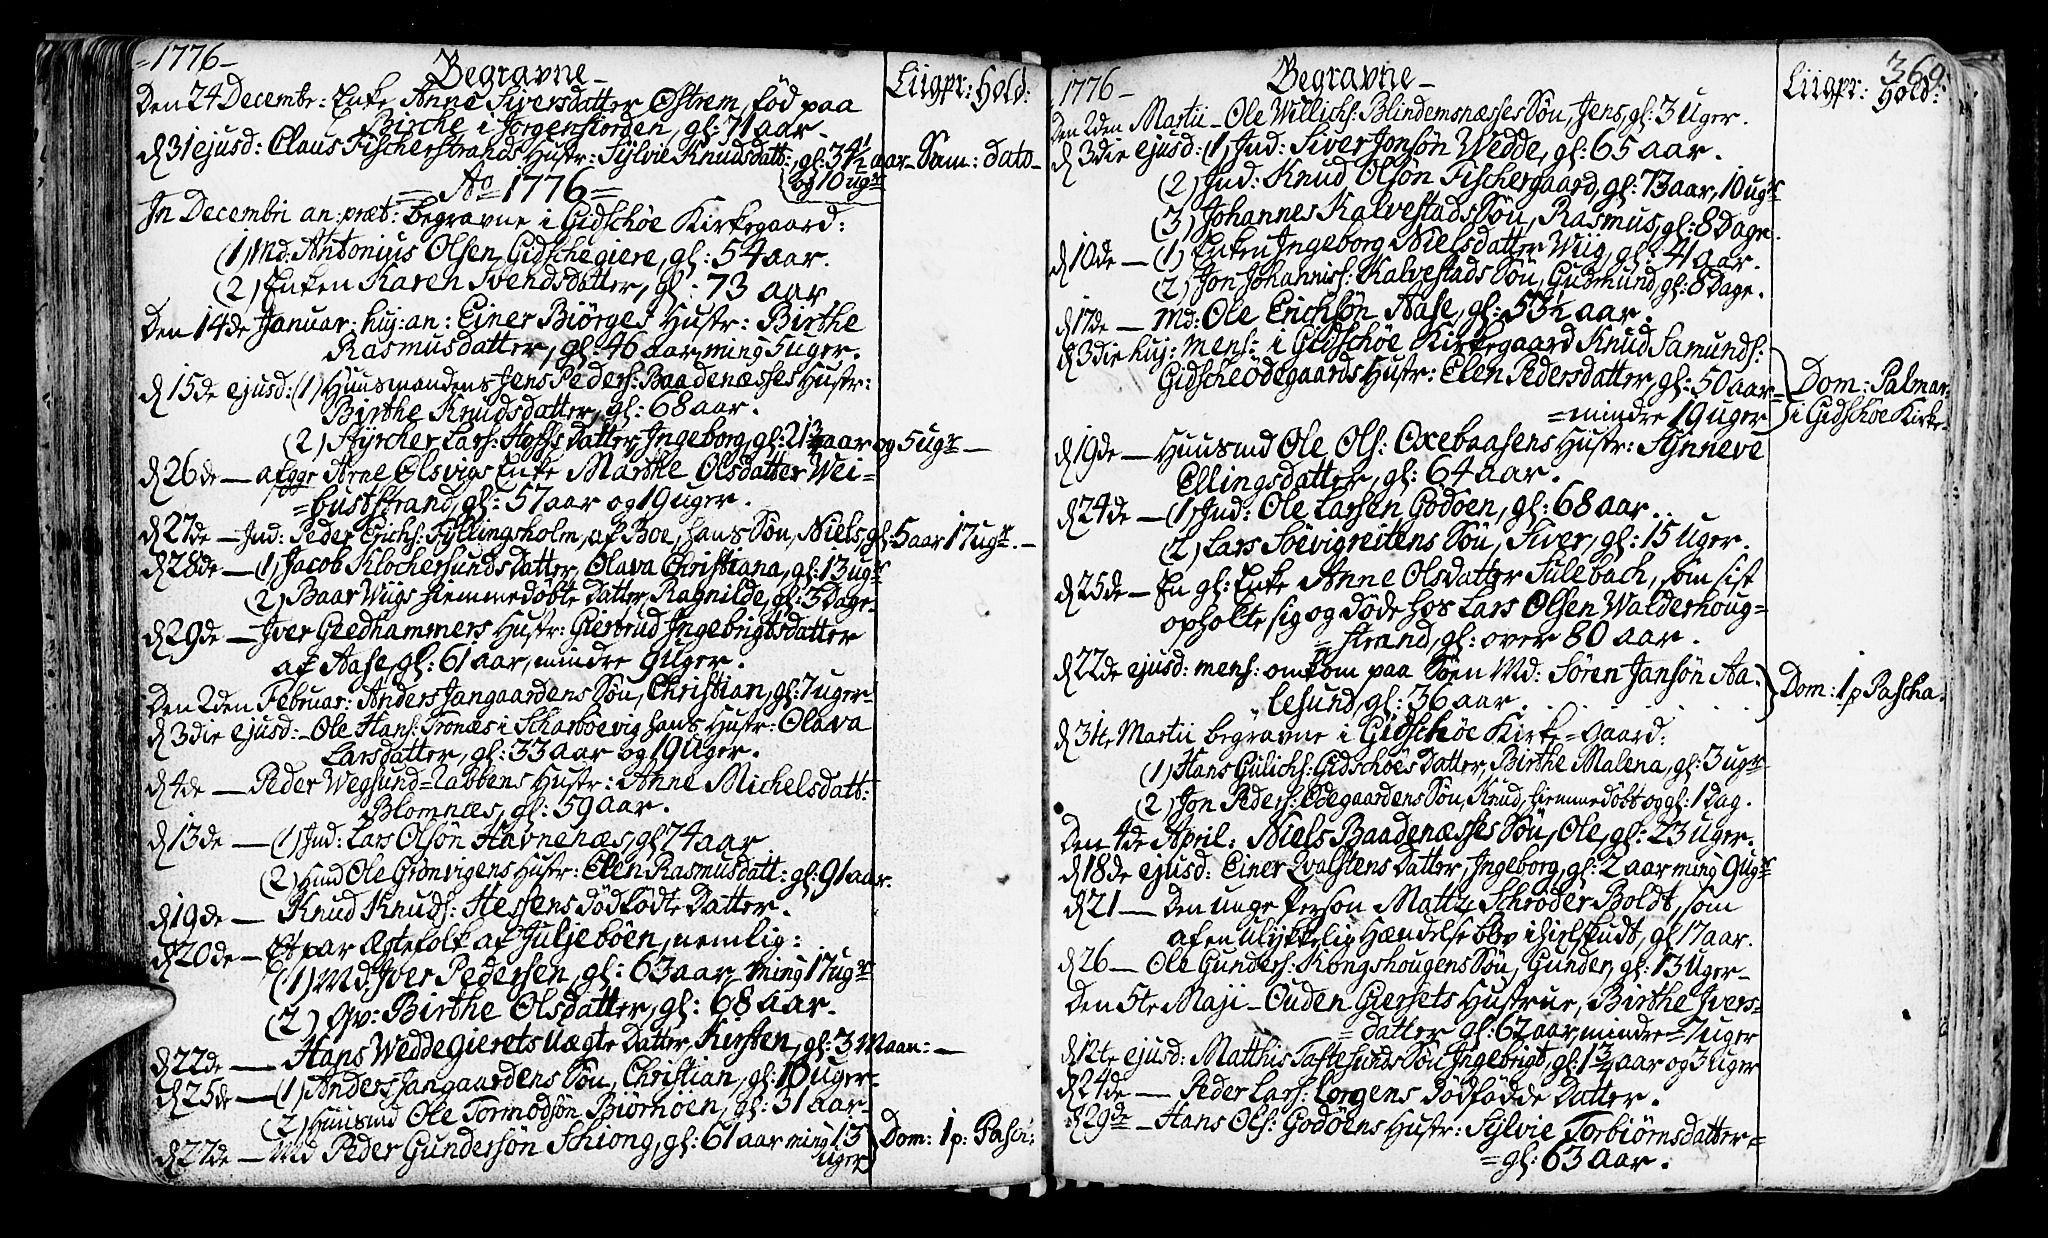 =1776-
Begravne-
Liigpr: Hold:
Den 24 Decembr: Enke Anne Siversdatter Østrem, fød paa
Birche i Jørgenfiorden, gl: 71 aar-
d 31 ejusd: Claus Fischerstrands Hustr: Sÿlvie Knudsdatt: gl: 34½ aar- Sam: dato-
og 10 ugr
=Ao 1776=
In Decembri an: præt: begravne i Gidschøe Kirkegaard:
(1) Md. Antonius Olsen Gidschegiere, gl: 54 aar.
(2) Enken Karen Svendsdatter, gl: 73 aar
Den 14de Januar: huj: an: Einer Biørges Hustr: Birthe
Rasmusdatter, gl: 46 aar ming 5 uger.
d 15de ejusd: (1) Huusmandens Jens Peders: Baadenæsses Hustr:
Birthe Knudsdatter, gl: 68 aar.
(2) Hyrcher Lars: Hoffs datter, Ingeborg, gl: 21¾ aar og 5 ugr-
d 26de - afggr Arne Olsvigs Enke Marthe Olsdatter Wei-
=buststrand, gl: 57 aar og 19 uger.
d 27de - Ind: Peder Erichs: Fÿllingsholm, af Boe, hans Søn, Niels, gl: 5 aar 17 ugr.-
d 28de - (1) Jacob Klochersunds datter, Olava Christiana, gl: 13 ugr
(2) Baar Wiigs hiemmedøbte datter, Ragnilde, gl: 3 Dage-
d 29de - Iver Geedhammers Hustr: Giertrud Ingebrigtsdatter
af Aase, gl: 61 aar, mindre 9 uger.
Den 2den Februar: Anders Jangaardens Søn, Christian, gl: 7 uger-
d 3die ejusd: - Ole Hans: Tronæs i Skarboevig hans Hustr: Olava
Larsdatter, gl: 33 aar og 19 uger.
d 4de - Peder Wegsund=Rabbens Hustr: Anne Michelsdatt:
Blomnæs, gl: 59 aar.
d 13de - (1) Ind: Lars Olsøn Havnenæs, gl 74 aar
(2) Hmd Ole Grønvigens Hustr: Elen Rasmusdatt: gl: 91 aar.
d 19de - Knud Knuds: Hessens dødfødte Datter.
d 20de - Et par Ægtefolk af Juljebøen, nemlig:
(1) Md. Iver Pedersen, gl: 63 aar, ming 17 ugr
(2) Qv: Birthe Olsdatter, gl: 68 aar.
d 22de - Hans Weddegierets uægte Datter, Kirsten, gl: 3 Maan:-
d 25de - (1) Anders Jangaardens Søn, Christian, gl: 10 uger-
(2) Huusmd Ole Tormodsøn Biørnøen, gl: 31 aar-
d 27de - Md Peder Gundersøn Schiong, gl: 61 aar ming 13
uger
Dom: 1 p: Pasch:
369.
1776-
Begravne-
Liigpr: Hold:
Den 2den Martii - Ole Willichs: Blindemsnæsses Søn, Jens, gl: 3 uger.
d 3die ejusd: (1) Ind: Siver Jonsøn Wedde, gl: 65 aar.
(2) Ind: Knud Olsøn Fischergaard, gl: 73 aar, 10 ugr
(3) Johannes Kalvestads Søn, Rasmus, gl: 8 Dage.
d 10de - (1) Enken Ingeborg Nielsdatter Wiig, gl: 41 aar.
(2) Jon Johannis: Kalvestads Søn, Gudmund, gl: 8 Dage.
d 17de - Md: Ole Erichsøn Aase, gl: 53½ aar.
d 3die huj: mens: i Gidschøe Kirkegaard Knud Samunds:
Gidscheødegaards Hustr: Elen Pedersdatter, gl: 50 aar-
=mindre 19 uger
Dom: Palmar:
i Gidschøe Kirke-
d 19de - Huusmd Ole Ols: Oxebaasens Hustr: Sÿnneve
Ellingsdatter, gl: 64 aar.
d 24de - (1) Ind: Ole Larsen Godøen, gl: 68 aar.
(2) Lars Søevigreitens Søn, Siver, gl: 15 uger.
d 25de - En gl: Enke Anne Olsdatter Sulebach, som sist
opholte sig og døde hos Lars Olsen Walderhoug=
=strand, gl: over 80 aar.
d 22de ejusd: mens: omkom paa Søen Md: Søren Jansøn Aa-
lesund, gl: 36 aar.
Dom: 1 p Pascha.
d 31te Martii begravne i Gidschøe Kirke=gaard:
(1) Hans Gulichs: Gidschøes datter, Birthe Malena, gl: 3 ugr
(2) Jon Peders: Ødegaardens Søn, Knud, hiemmedøbt og gl: 1 Dag.
Den 4de April: Niels Baadenæsses Søn, Ole, gl: 23 uger.
d 18de ejusd: Einer Qvalstens Datter, Ingeborg, gl: 2 aar ming 9 ugr
d 21 - Den unge Person Matts Schrøder Boldt, som
af en ulykkelig Hændelse blev ihielskudt, gl 17 aar.
d 26 - Ole Gunders: Kongshougens Søn, Gunder, gl: 13 Uger-
Den 5te Maji - Ouden Giersets Hustrue, Birthe Ivers-
=datter gl: 62 aar, mindre=7 uger
d 12te ejusd: Matthis Taftesunds Søn Ingebrigt, gl: 1¾ aar og 3 uger
d 24de - Peder Lars: Lorgens dødfødde Datter.
d 29de - Hans Ols: Godøens Hustr: Sÿlvie Torbiørnsdatter=
=gl: 63 aar.